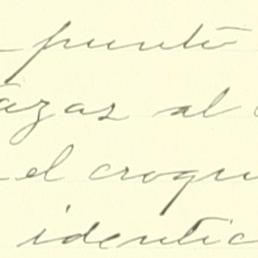 punto
azas al
el croqu
identic